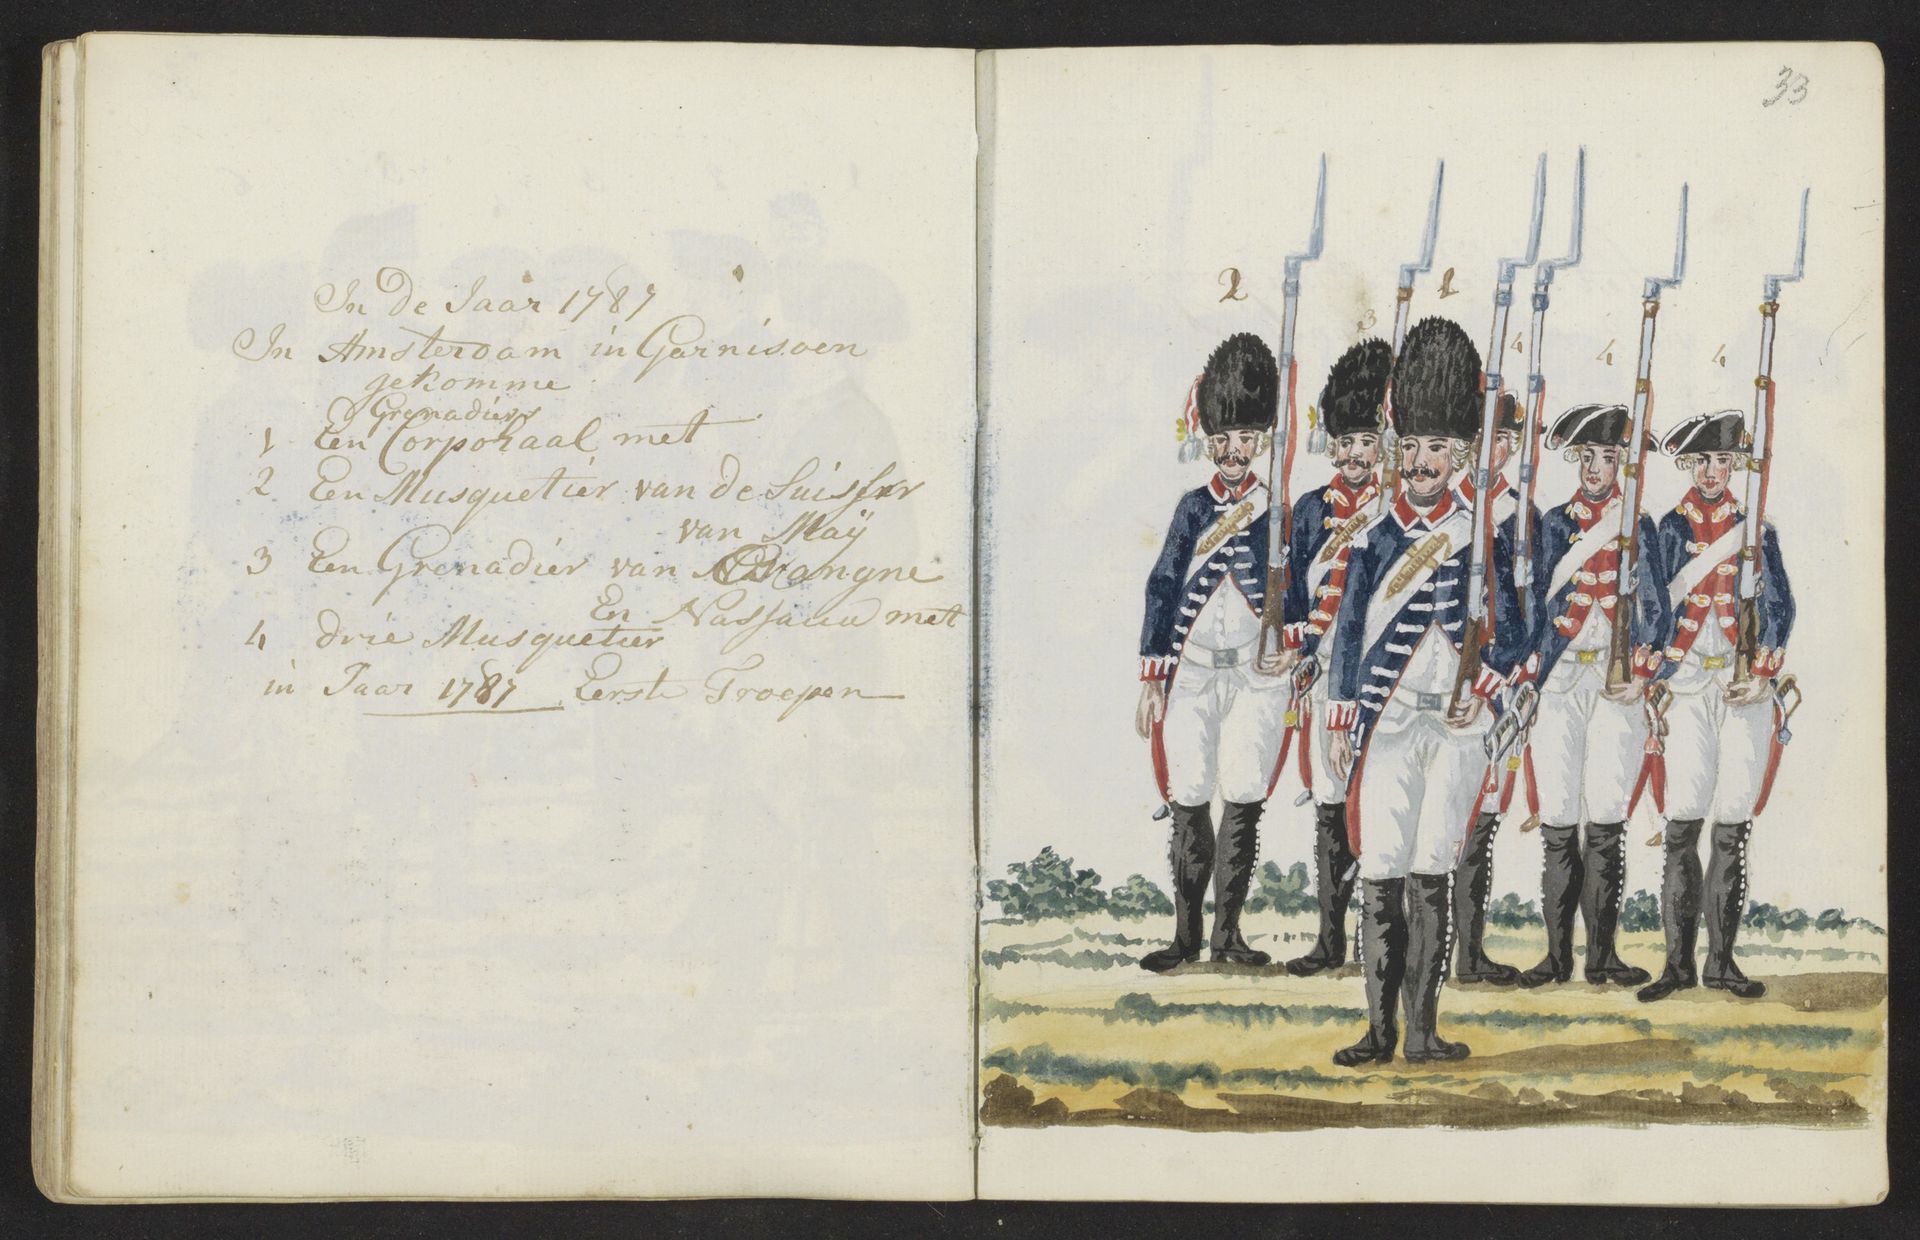 In de Jaar 1787
In Amsterdam in Garnisoen
gekomme
Grenadiers
1 Een Corporaal met
2 Een Musquetier van de Suisser
van Maÿ
3 Een Grenadier van Orangne
En Nassauw met
4 drie Musquetier
in Jaar 1787 Eerste Troepen
33
2 1
3 4 4 4